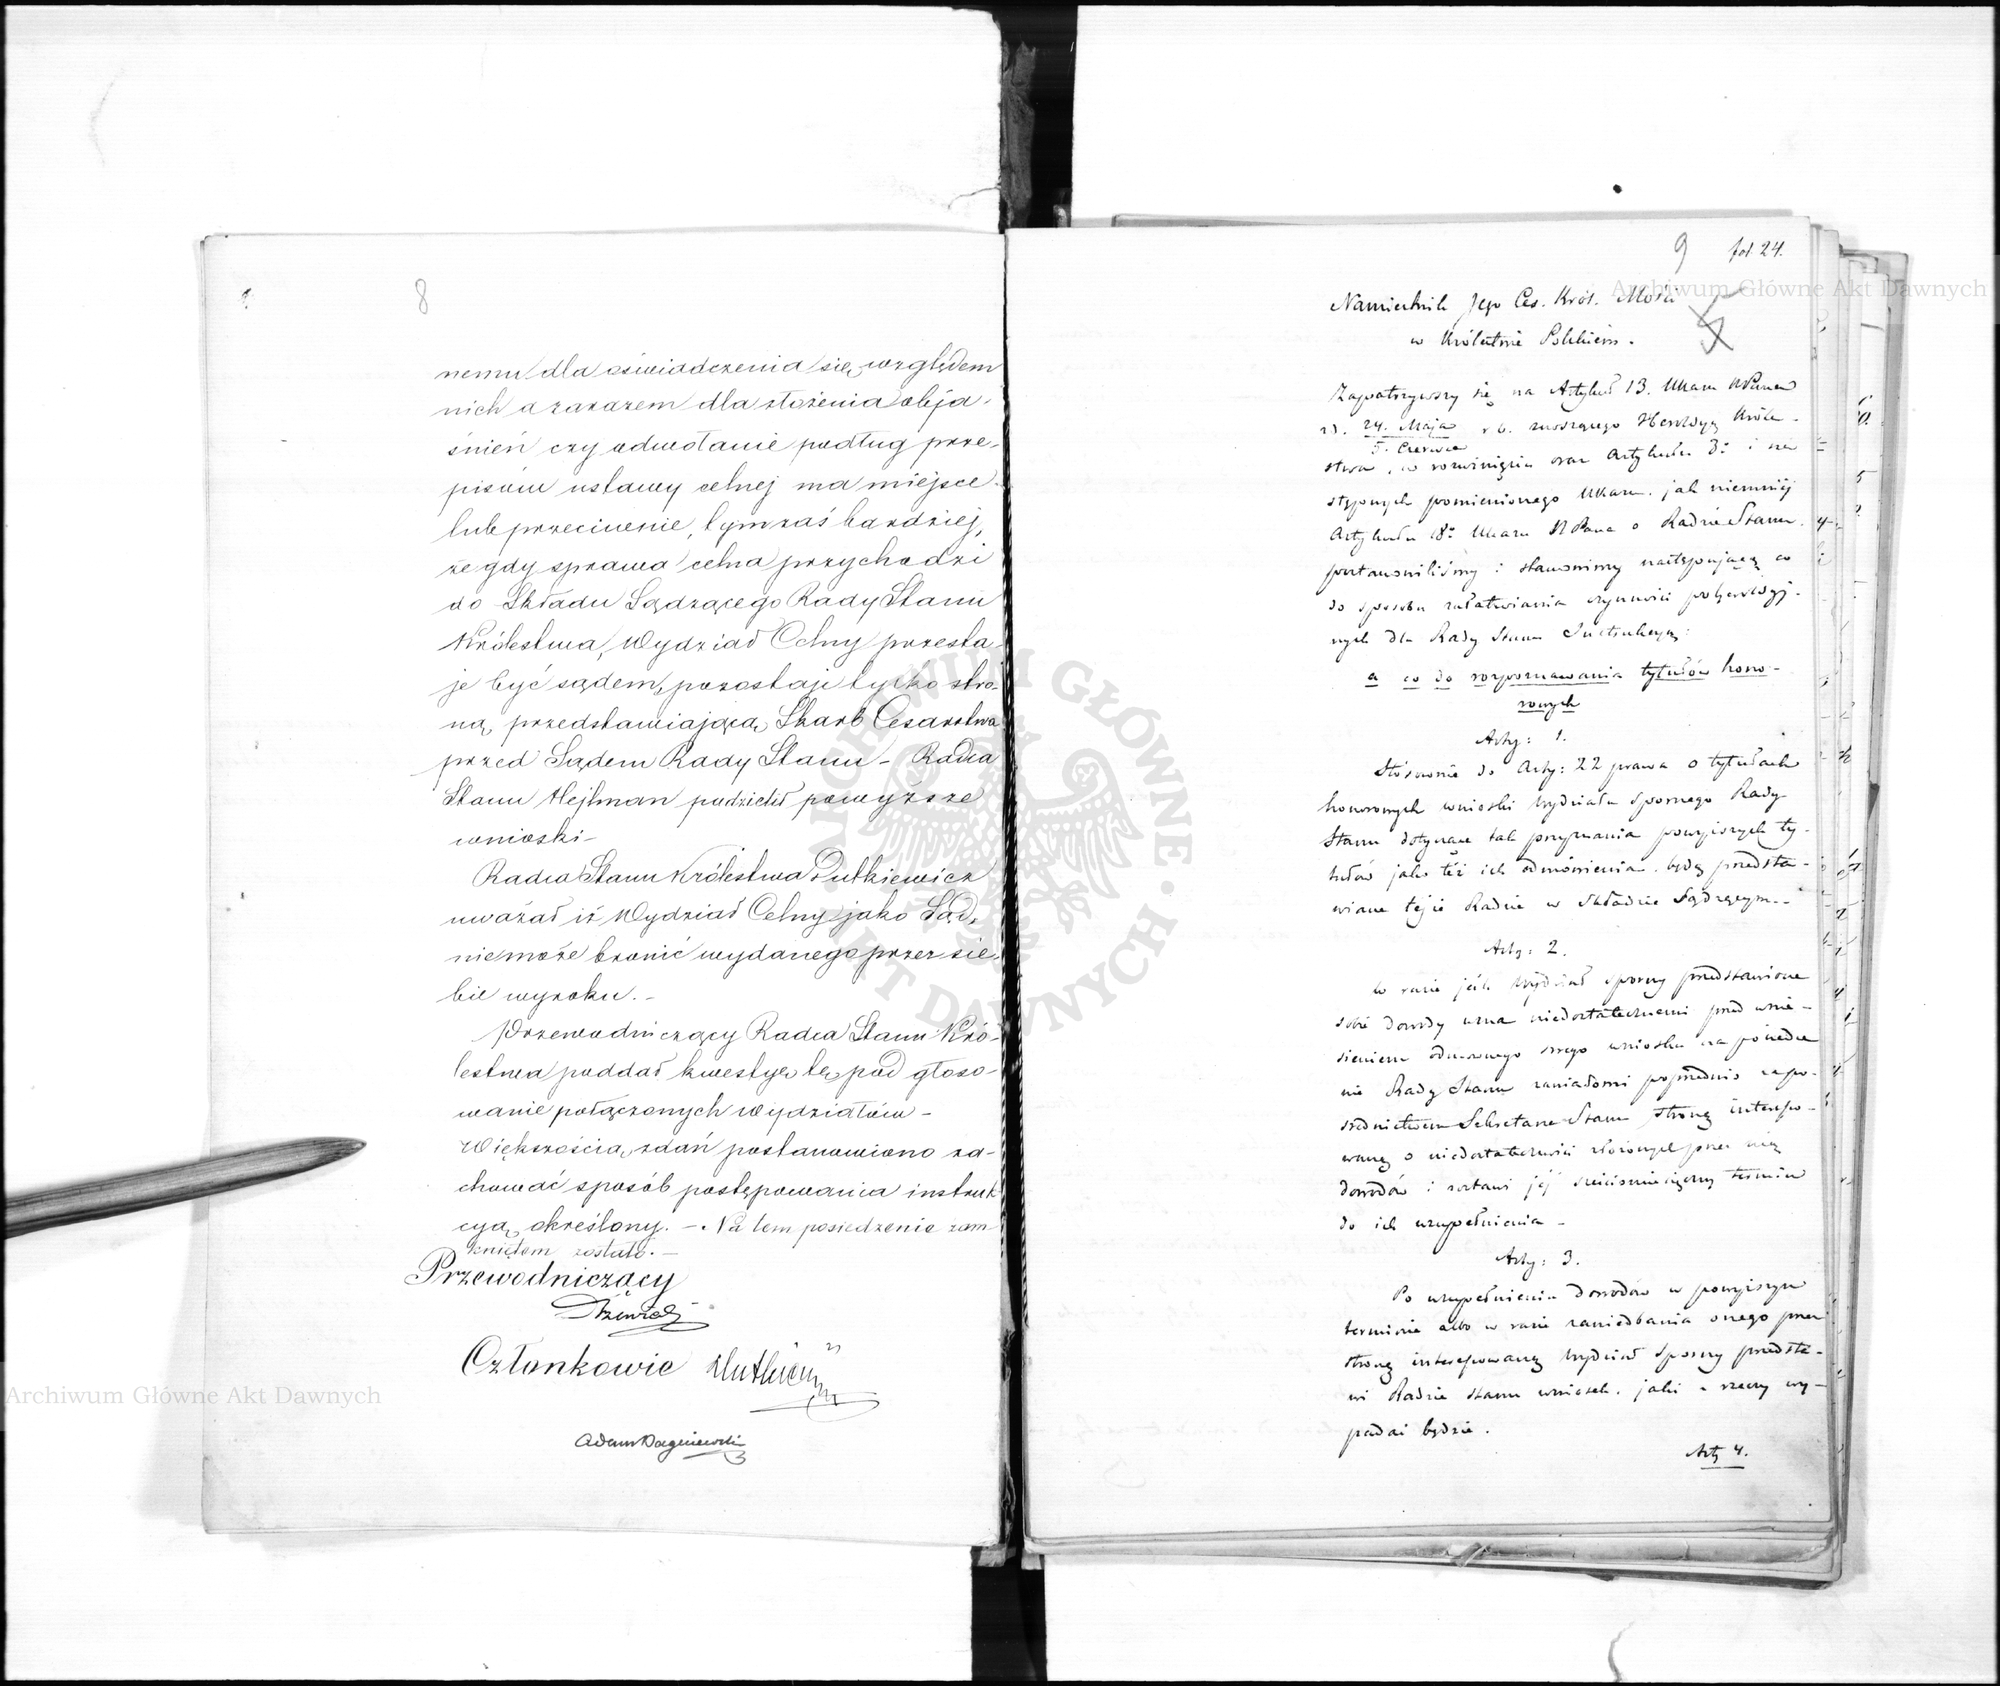 8
nemu dla oświadczenia się względem
nich a zarazem dla złożenia obja-
śnień czy odwołanie podług prze-
pisów ustawy celnej ma miejsce
lub przeciwnie, tymzaś bardziej,
że gdy sprawa celna przychodzi
do Składu Sądzącego Rady Stanu
Królestwa, Wydział Celny przesta-
je być sądem, pozostaje tylko stro-
ną, przedstawiającą Skarb Cesarstwa
przed Sądem Rady Stanu – Radca
Stanu Hejlman podzielił powyższe
wnioski –
Radca Stanu Królestwa Dutkiewicz
uważał iż Wydział Celny jako Sąd,
nie może bronić wydanego przez sie-
bie wyroku. –
Przewodniczący Radca Stanu Kró-
lestwa poddał kwestyę tę pod głoso-
wanie połączonych Wydziałów –
Większością zdań postanowiono za-
chować sposób postępowania instruk-
cyą określony. – Na tem posiedzenie zam-
kniętem zostało. –
Przewodniczący
Członkowie
9 fol. 24.
Namiestnik Jego Ces. Król. Mości
w Królestwie Polskiem.
Zapatrzywszy się na Artykuł 13. Ukazu NPana
z d. 24. Maja r b. znoszącego Heroldyę Króle-
5. Czerwca
stwa, w rozwinięciu oraz Artykułu 3o i na
stępnych pomienionego Ukazu, jak niemniéj
Artykułu 18o Ukazu NPana o Radzie Stanu,
postanowiliśmy i stanowimy następującą co
do sposobu załatwiania czynności poheroldyj-
nych dla Rady Stanu Instrukcyą:
a co do rozpoznawania tytułów hono-
rowych
Arty: 1.
Stósownie do Arty: 22 prawa o tytułach
honorowych wnioski Wydziału Spornego Rady
Stanu dotyczące tak przyznania powyższych ty-
tułów jako też ich odmówienia, będą przedsta-
wiane tejże Radzie w Składzie Sądzącym. –
Arty: 2.
W razie jeśli Wydział sporny przedstawione
sobie dowody uzna niedostatecznemi przed wnie-
sieniem odmownego swego wniosku na posiedze
nie Rady Stanu zawiadomi poprzednio za po-
średnictwem Sekretarza Stanu stronę intereso-
waną o niedostateczności złożonych przez nią
dowodów i zostawi jéj sześciomiesięczny termin
do ich uzupełnienia –
Arty: 3.
Po uzupełnieniu dowodów w powyższym
terminie albo w razie zaniedbania onego przez
stronę interesowaną Wydział Sporny przedsta-
wi Radzie Stanu wniosek, jaki z rzeczy wy-
padać będzie.
Arty 4.
Archiwum Główne Akt Dawnych
Archiwum Główne Akt Dawnych
ARCHIWUM GŁÓWNE AKT DAWNYCH